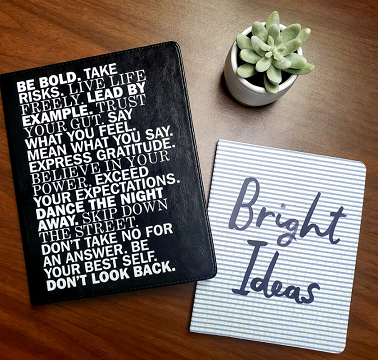 BE BOLD. TAKE
RISKS. LIVE LIFE
FREELY. LEAD BY
EXAMPLE. TRUST
YOUR GUT. SAY
WHAT YOU FEEL.
MEAN WHAT YOU SAY.
EXPRESS GRATITUDE.
BELIEVE IN YOUR
POWER. EXCEED
YOUR EXPECTATIONS.
DANCE THE NIGHT
AWAY. SKIP DOWN
THE STREET.
DON'T TAKE NO FOR
AN ANSWER. BE
YOUR BEST SELF.
DON'T LOOK BACK.
Bright
Ideas